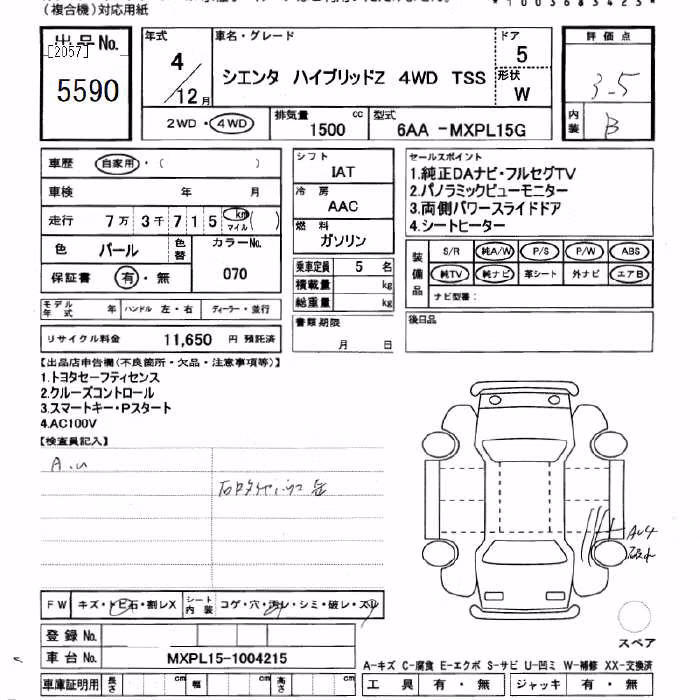 (複合機)対応用紙
*1003683423*
出品No.
[2057]
5590
年式
4
12月
車名・グレード
シエンタ ハイブリッドZ 4WD TSS
ドア
5
形状
W
評価点
3.5
内装
B
2WD・4WD
排気量
1500 cc
型式
6AA -MXPL15G
車歴 自家用・( )
車検 年 月
走行 7万 3千 7 1 5 km マイル ( )
色 パール 色替
カラーNo.
070
保証書 有・無
モデル年式 年 ハンドル 左・右 ディーラー・並行
リサイクル料金 11,650 円 預託済
シフト
IAT
冷房
AAC
燃料
ガソリン
乗車定員 5 名
積載量 kg
総重量 kg
書類期限
月 日
セールスポイント
1.純正DAナビ・フルセグTV
2.パノラミックビューモニター
3.両側パワースライドドア
4.シートヒーター
装備品
S/R 純A/W P/S P/W ABS
純TV 純ナビ 革シート 外ナビ エアB
ナビ型番:
後日品
【出品店申告欄(不良箇所・欠品・注意事項等)】
1.トヨタセーフティセンス
2.クルーズコントロール
3.スマートキー・Pスタート
4.AC100V
【検査員記入】
A.U
AU4
FW キズ・トビ石・割レX シート内装 コゲ・穴・汚レ・シミ・破レ・スレ
登録No.
車台No. MXPL15-1004215
スペア
A-キズ C-腐食 E-エクボ S-サビ U-凹ミ W-補修 XX-交換済
車庫証明用 長さ cm 幅 cm 高さ cm
工具 有・無 ジャッキ 有・無